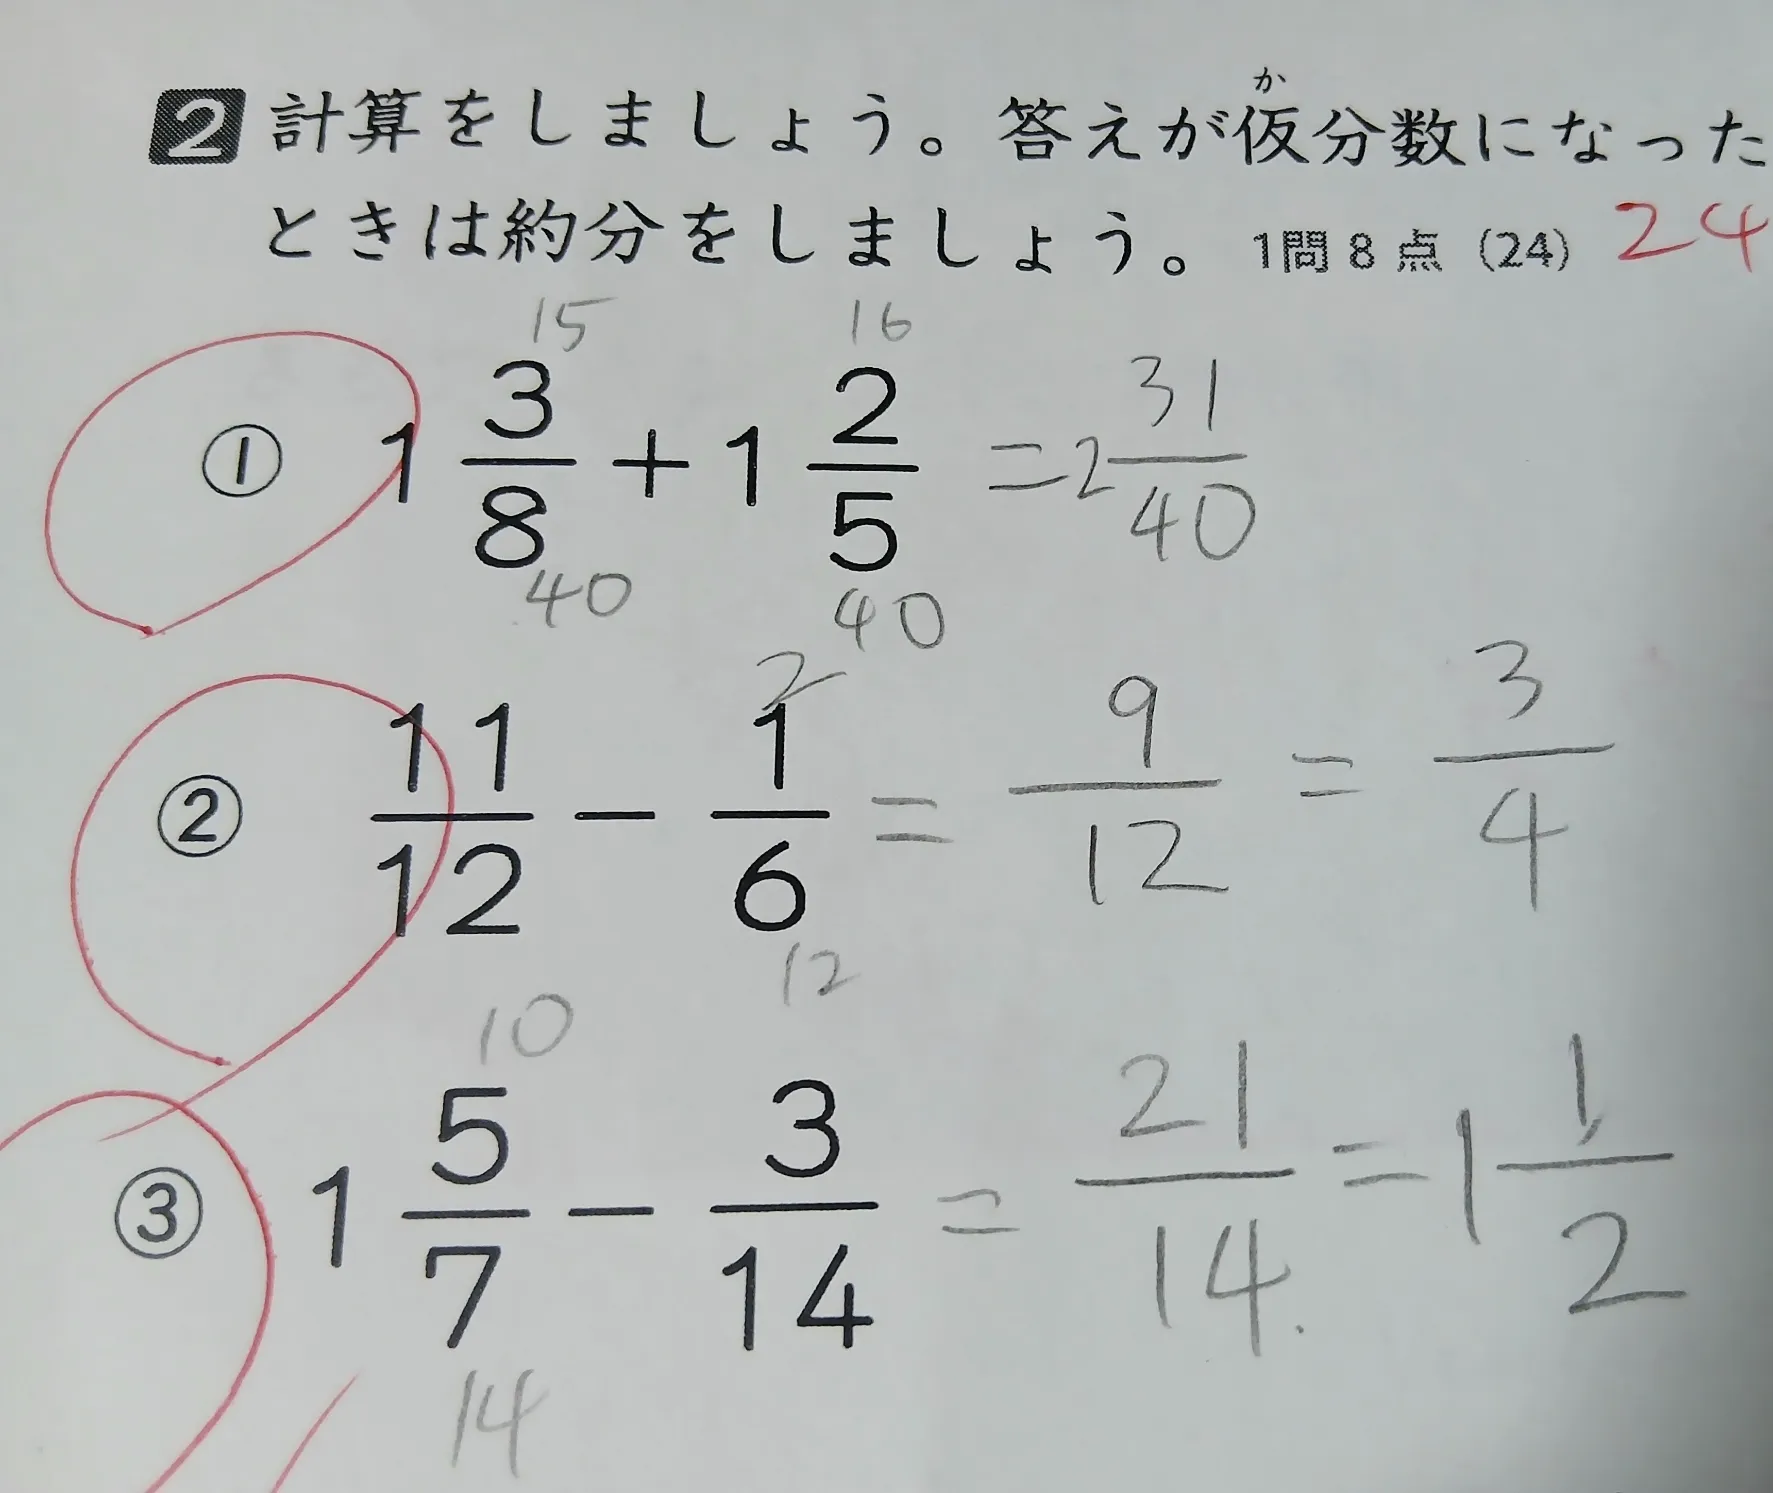 か
2 計算をしましょう。答えが仮分数になった
ときは約分をしましょう。 1問8点 (24) 24
15 16
① 1 3/8 + 1 2/5 = 2 31/40
40 40
2
② 11/12 - 1/6 = 9/12 = 3/4
12
10
③ 1 5/7 - 3/14 = 21/14 = 1 1/2
14